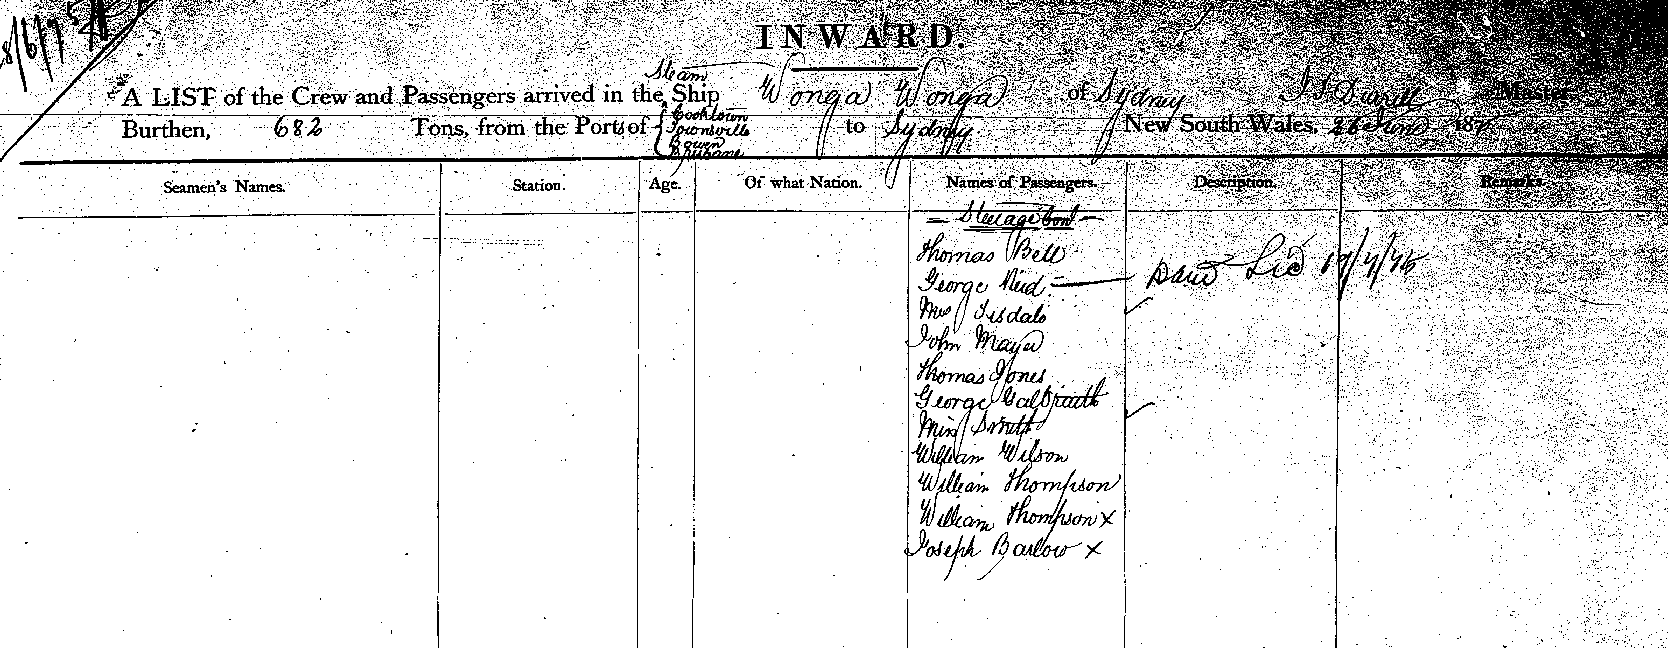 INWARD.
Steam
A LIST of the Crew and Passengers arrived in the Ship Wonga Wonga of Sydney Master
Burthen, 682 Tons, from the Ports of Cooktown Townsville Bowen Brisbane to Sydney New South Wales, 26 June 187
Seamen's Names. Station. Age. Of what Nation. Names of Passengers. Description. Remarks.
Steerage Cont
Thomas Bell
George Reid
Mrs
John
Thomas Jones
George Galbraith
Miss Smith
William Wilson
William Thompson
William Thompson x
Joseph Barlow x